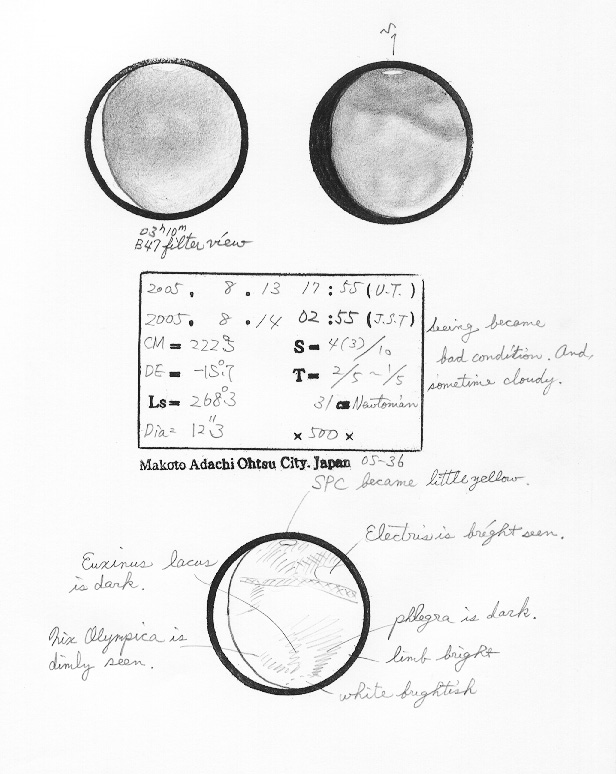 03ʰ10ᵐ
B47 filter view
2005. 8. 13 17:55 (U.T.)
2005. 8. 14 02:55 (J.S.T)
CM= 222.°3 S= 4(3)/10
DE= -15.°7 T= 2/5 ~ 1/5
Ls= 268.°3 31 cm Newtonian
Dia= 12."3 × 500 ×
Seeing became
bad condition. And,
sometime cloudy.
Makoto Adachi Ohtsu City. Japan 05-36
SPC became little yellow.
Electris is bright seen.
Euxinus lacus
is dark.
phlegra is dark.
Nix Olympica is
dimly seen.
limb bright
white brightish